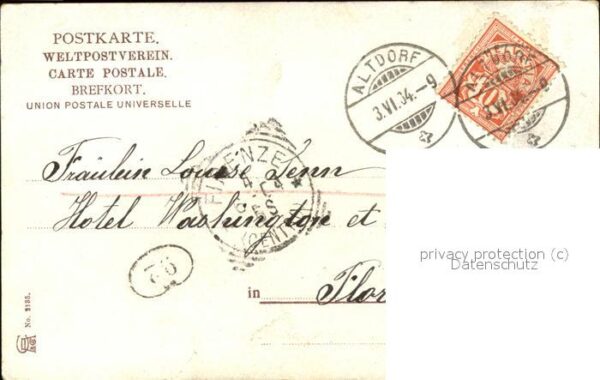 POSTKARTE.
WELTPOSTVEREIN.
CARTE POSTALE.
BREFKORT.
UNION POSTALE UNIVERSELLE
ALTDORF
3.VI.04.-9
ALTDORF
FIRENZE
(CENTR
Fräulein Louise Jenn
Hotel Washington et
in Flor
26
No. 2135.
privacy protection (c)
Datenschutz